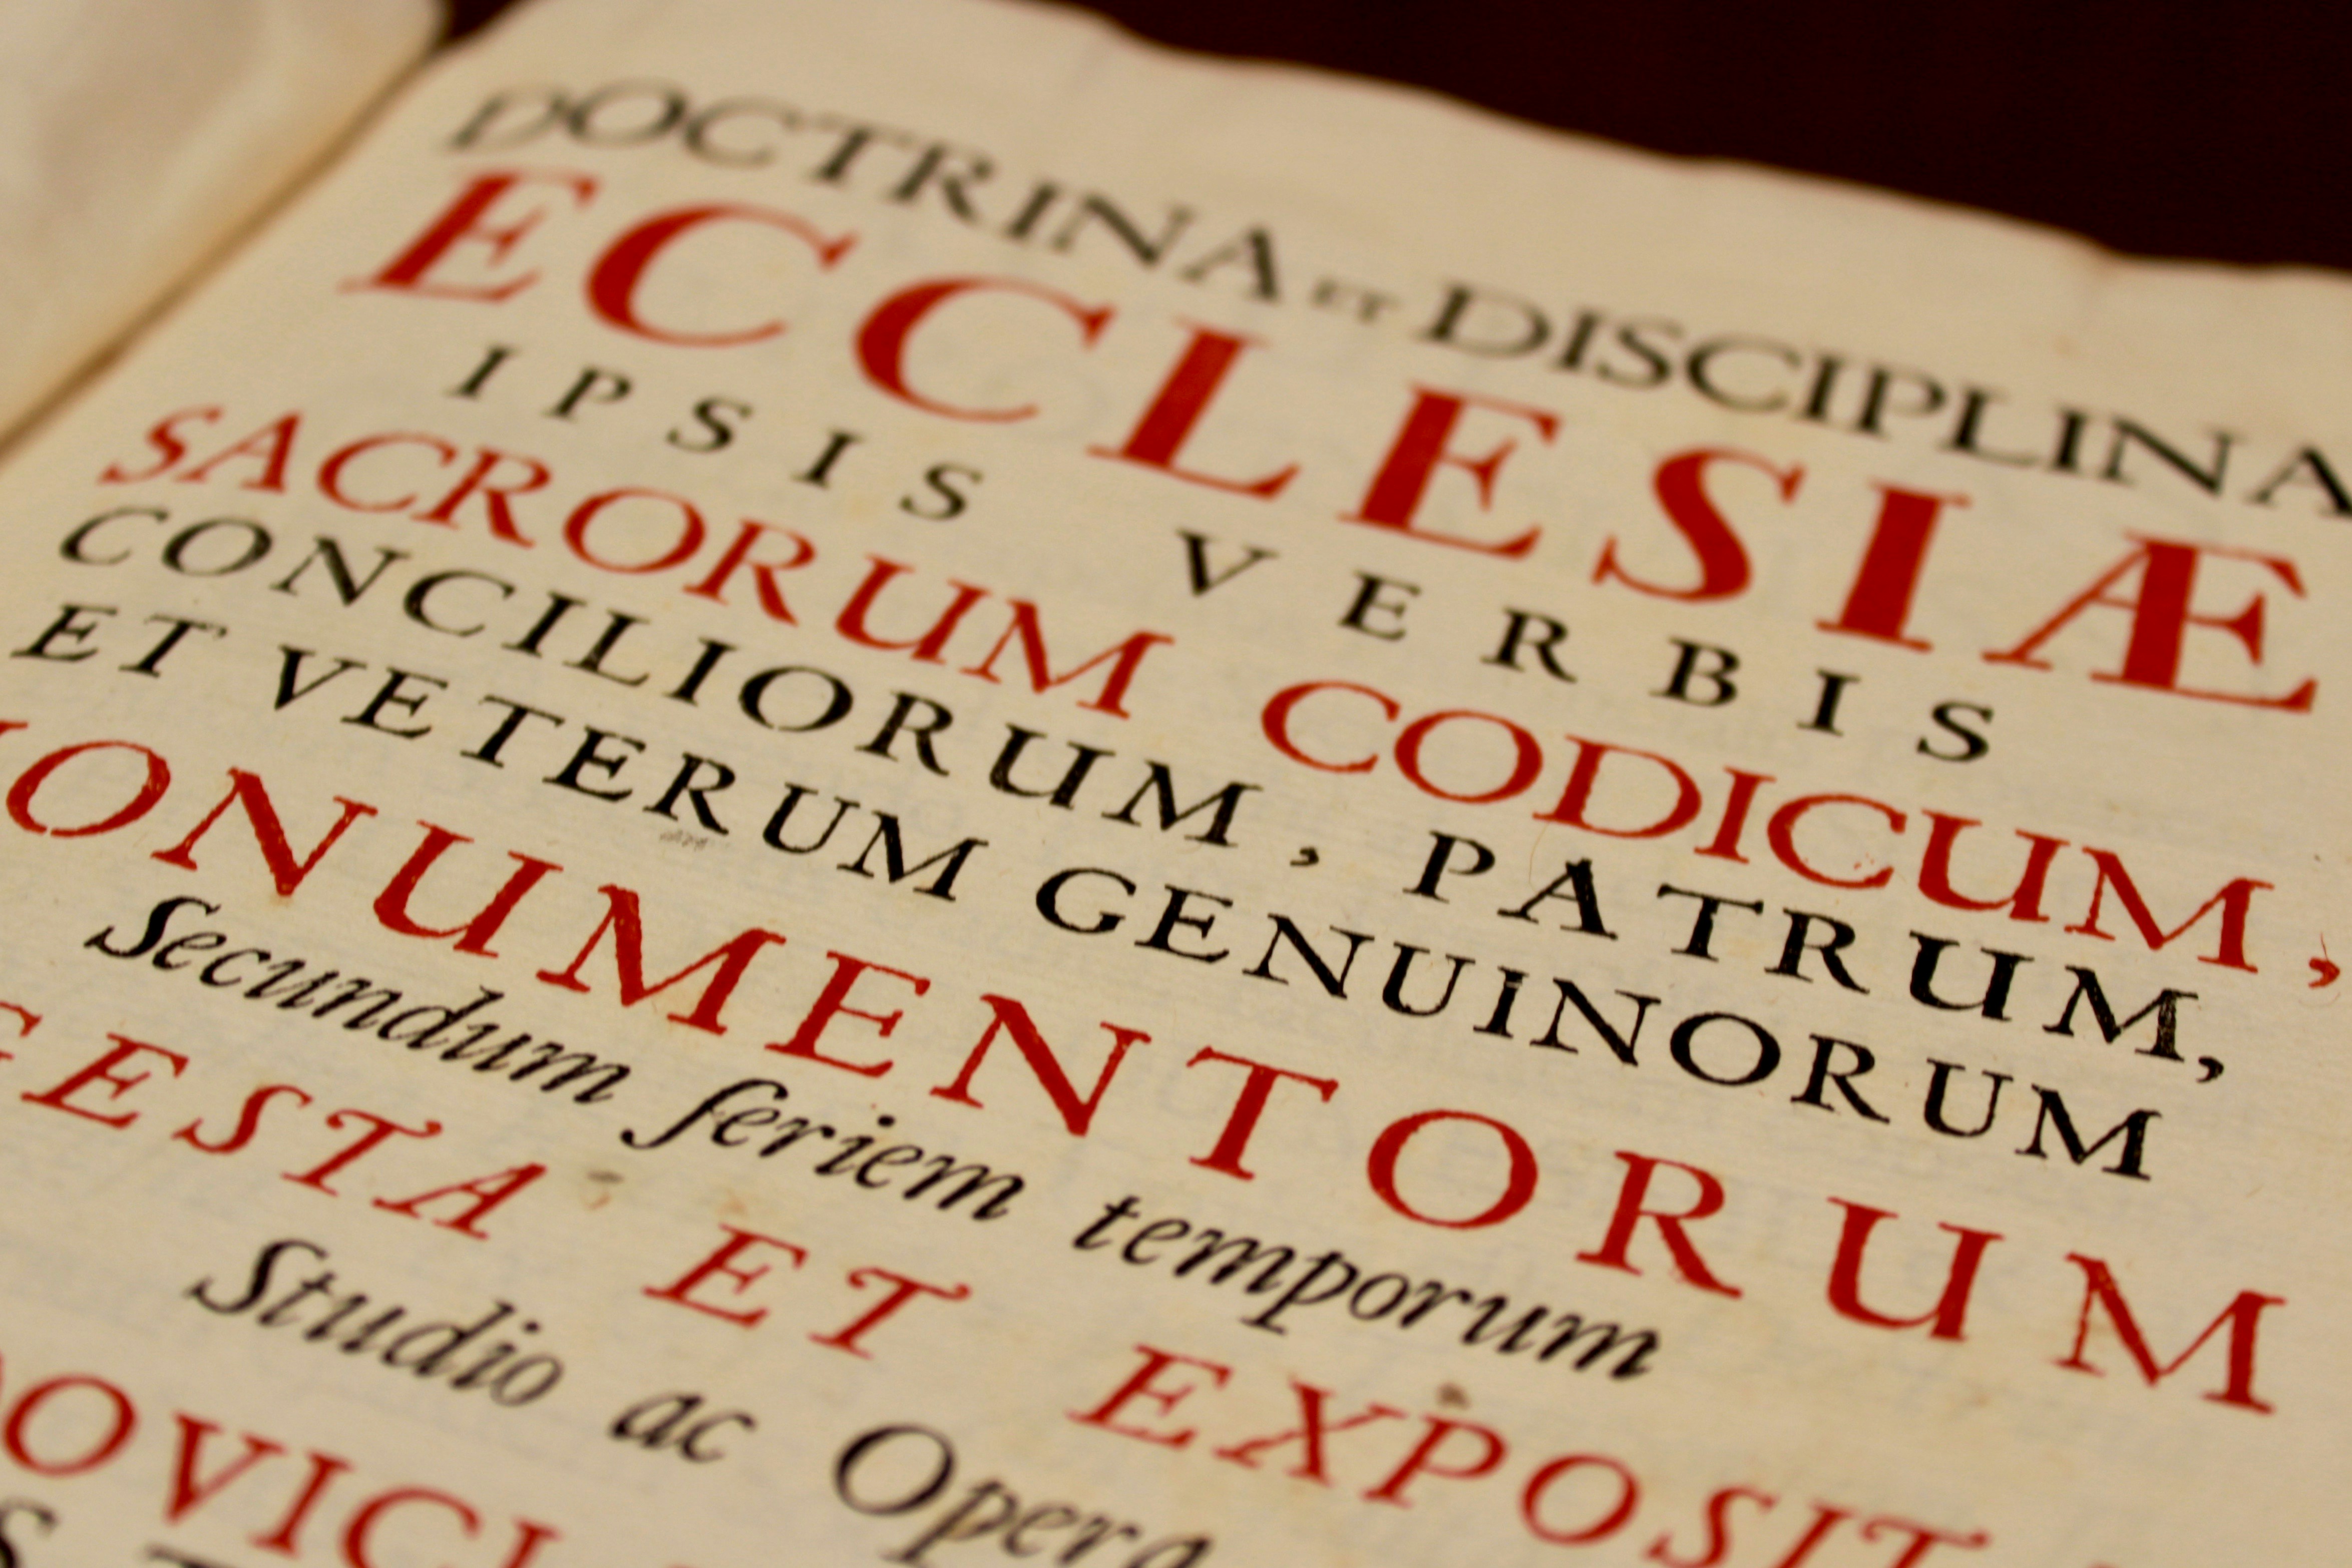 DOCTRINA ET DISCIPLINA
ECCLESIÆ
IPSIS VERBIS
SACRORUM CODICUM,
CONCILIORUM, PATRUM,
ET VETERUM GENUINORUM
ONUMENTORUM
Secundum ſeriem temporum
GESTA ET EXPOSIT
Studio ac Opera
OVICI